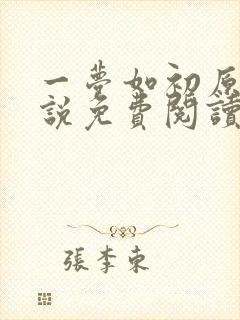 一夢如初原
說免費閱讀
張李東